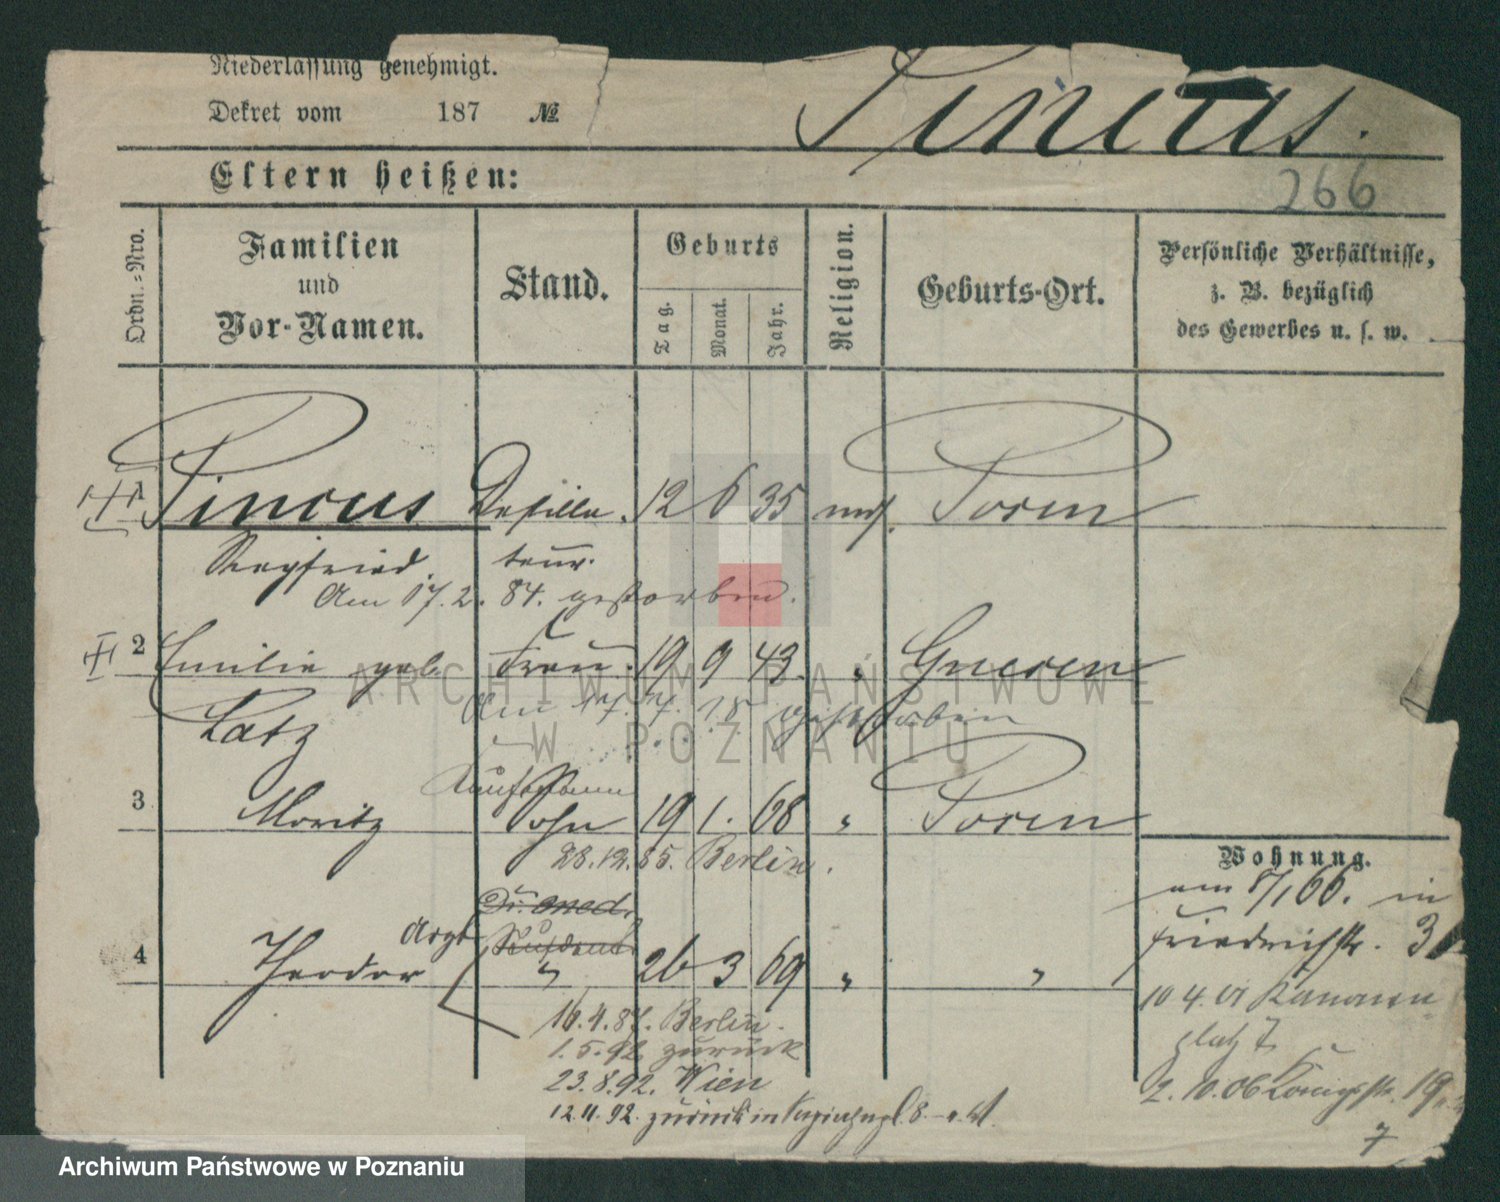 Niederlassung genehmigt.
Dekret vom 187 №
Pincus.
Eltern heißen:
266
Ordn.-Nro.
Familien
und
Vor-Namen.
Stand.
Geburts
Tag.
Monat.
Jahr.
Religion.
Geburts-Ort.
Persönliche Verhältnisse,
z. B. bezüglich
des Gewerbes u. s. w.
1 Pincus Destilla 12 6 35 mos. Posen
Siegfried. teur.
Am 17.2. 84. gestorben.
2 Emilie geb. Frau. 19 9 43. " Gnesen
Latz Am 17.7. 18 gestorben
Kaufmann
3 Moritz Sohn 19 1. 68 " Posen
28.12.85. Berlin.
Wohnung.
am 8/1 66. in
Friedrichstr. 3
Dr. med.
Arzt Student
4 Theodor " 26 3 69 " "
10 4. 01 Kanonen
platz 7
16.4.87. Berlin.
1.5.92. zurück
23.8.92. Wien
2. 10. 06 Königsstr. 19
12.11.92. zurück in
7
ARCHIWUM PAŃSTWOWE
W POZNANIU
Archiwum Państwowe w Poznaniu